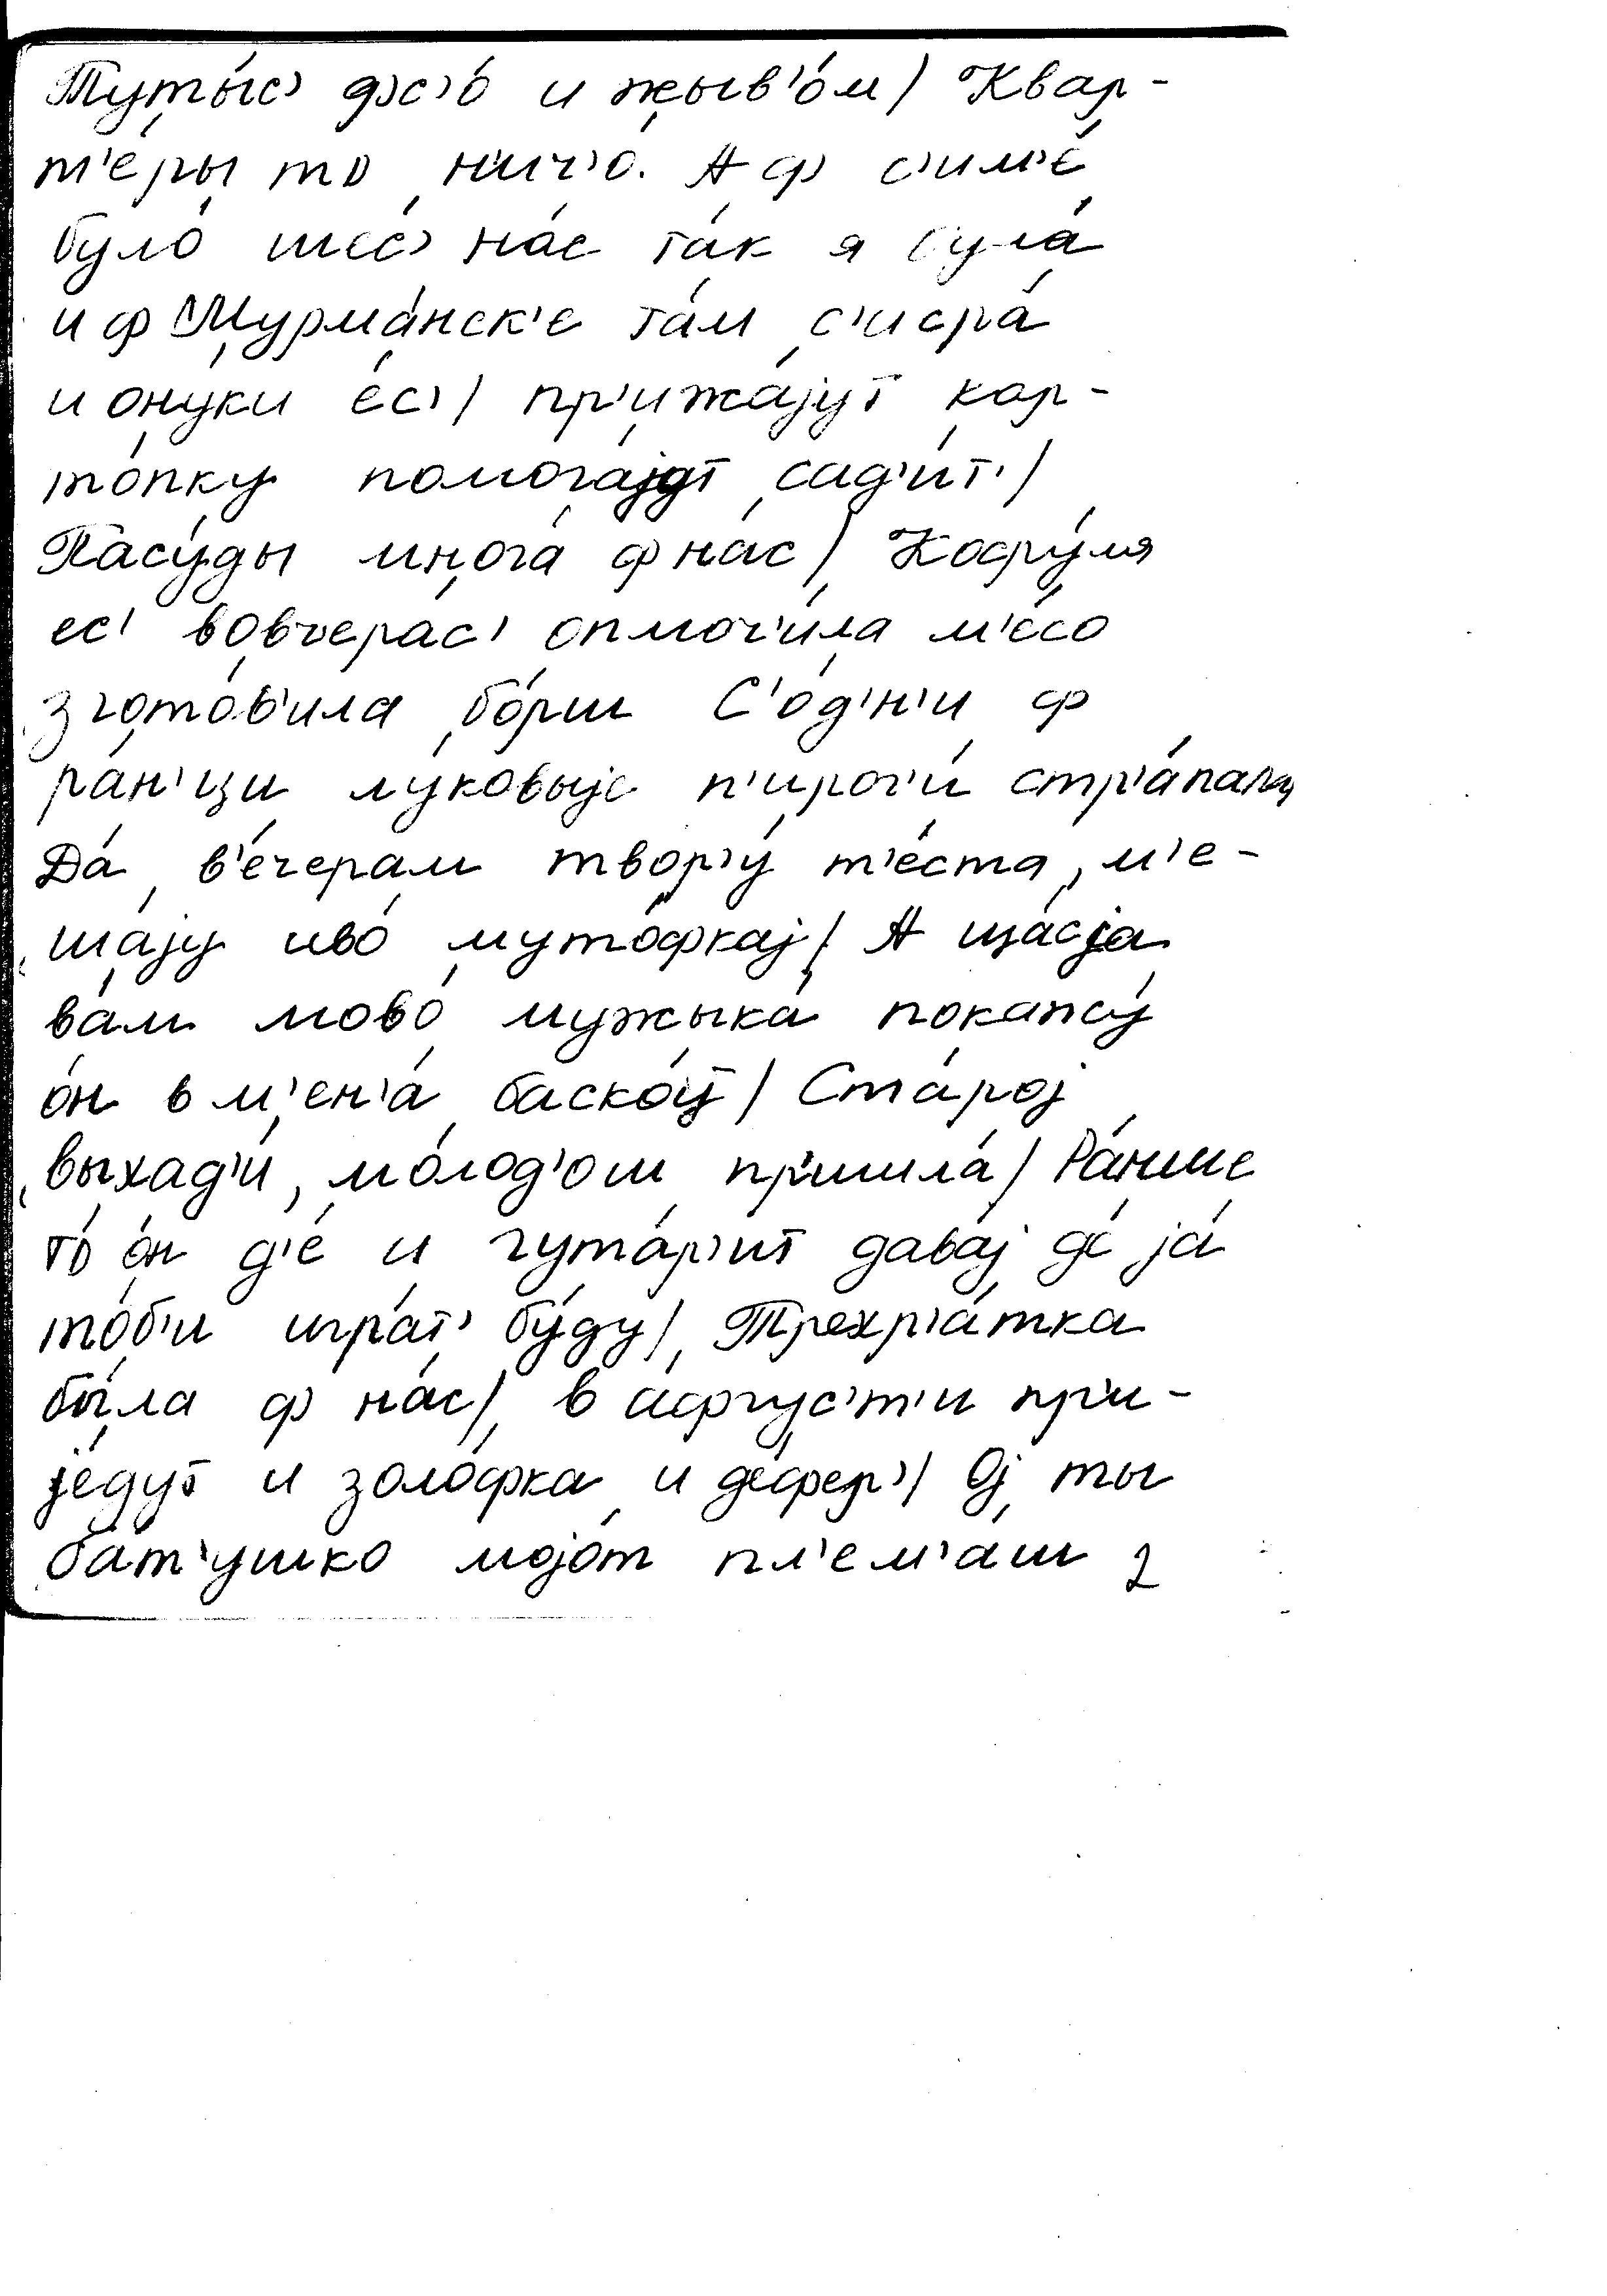 Туты́с' ф'с'о́ и жыв'о́м / Квар-
т'е́ры то н'ич'о́. А ф с'им'е́
було́ ше́с' на́с та́к я була́
и ф Мурма́нск'е та́м с'исра́
и ону́ки е́с' / пр'ижа́jут кар-
то́пку помога́jут сад'и́т' /
Пасу́ды мно́га ф на́с / Кофру́ля
ес' вовчера́с' опмоч'и́ла м'е́со
згото́в'ила бо́рш С'о́д'н'и ф
ра́н'ци лу́ковыjе п'ирог'и́ стр'а́пала
Да́ в'е́черам твор'у́ т'е́ста, м'е-
ша́jу иво́ муто́фкаj / А ща́сjа
ва́м мово́ мужыка́ покажу́
о́н в м'ен'а́ баско́j / Ста́роj
выхад'и́, мо́лод'ош пр'ишла́ / Ра́нше
то́ о́н д'е́ и гута́р'ит дава́j де́ jа́
то́б'и игра́т' бу́ду / Трехр'а́тка
бы́ла ф на́с / в а́фгус'т'и пр'и-
jе́дут и золо́фка и де́фер' / Оj ты
ба́т'ушко моjо́т пл'ем'а́ш 2